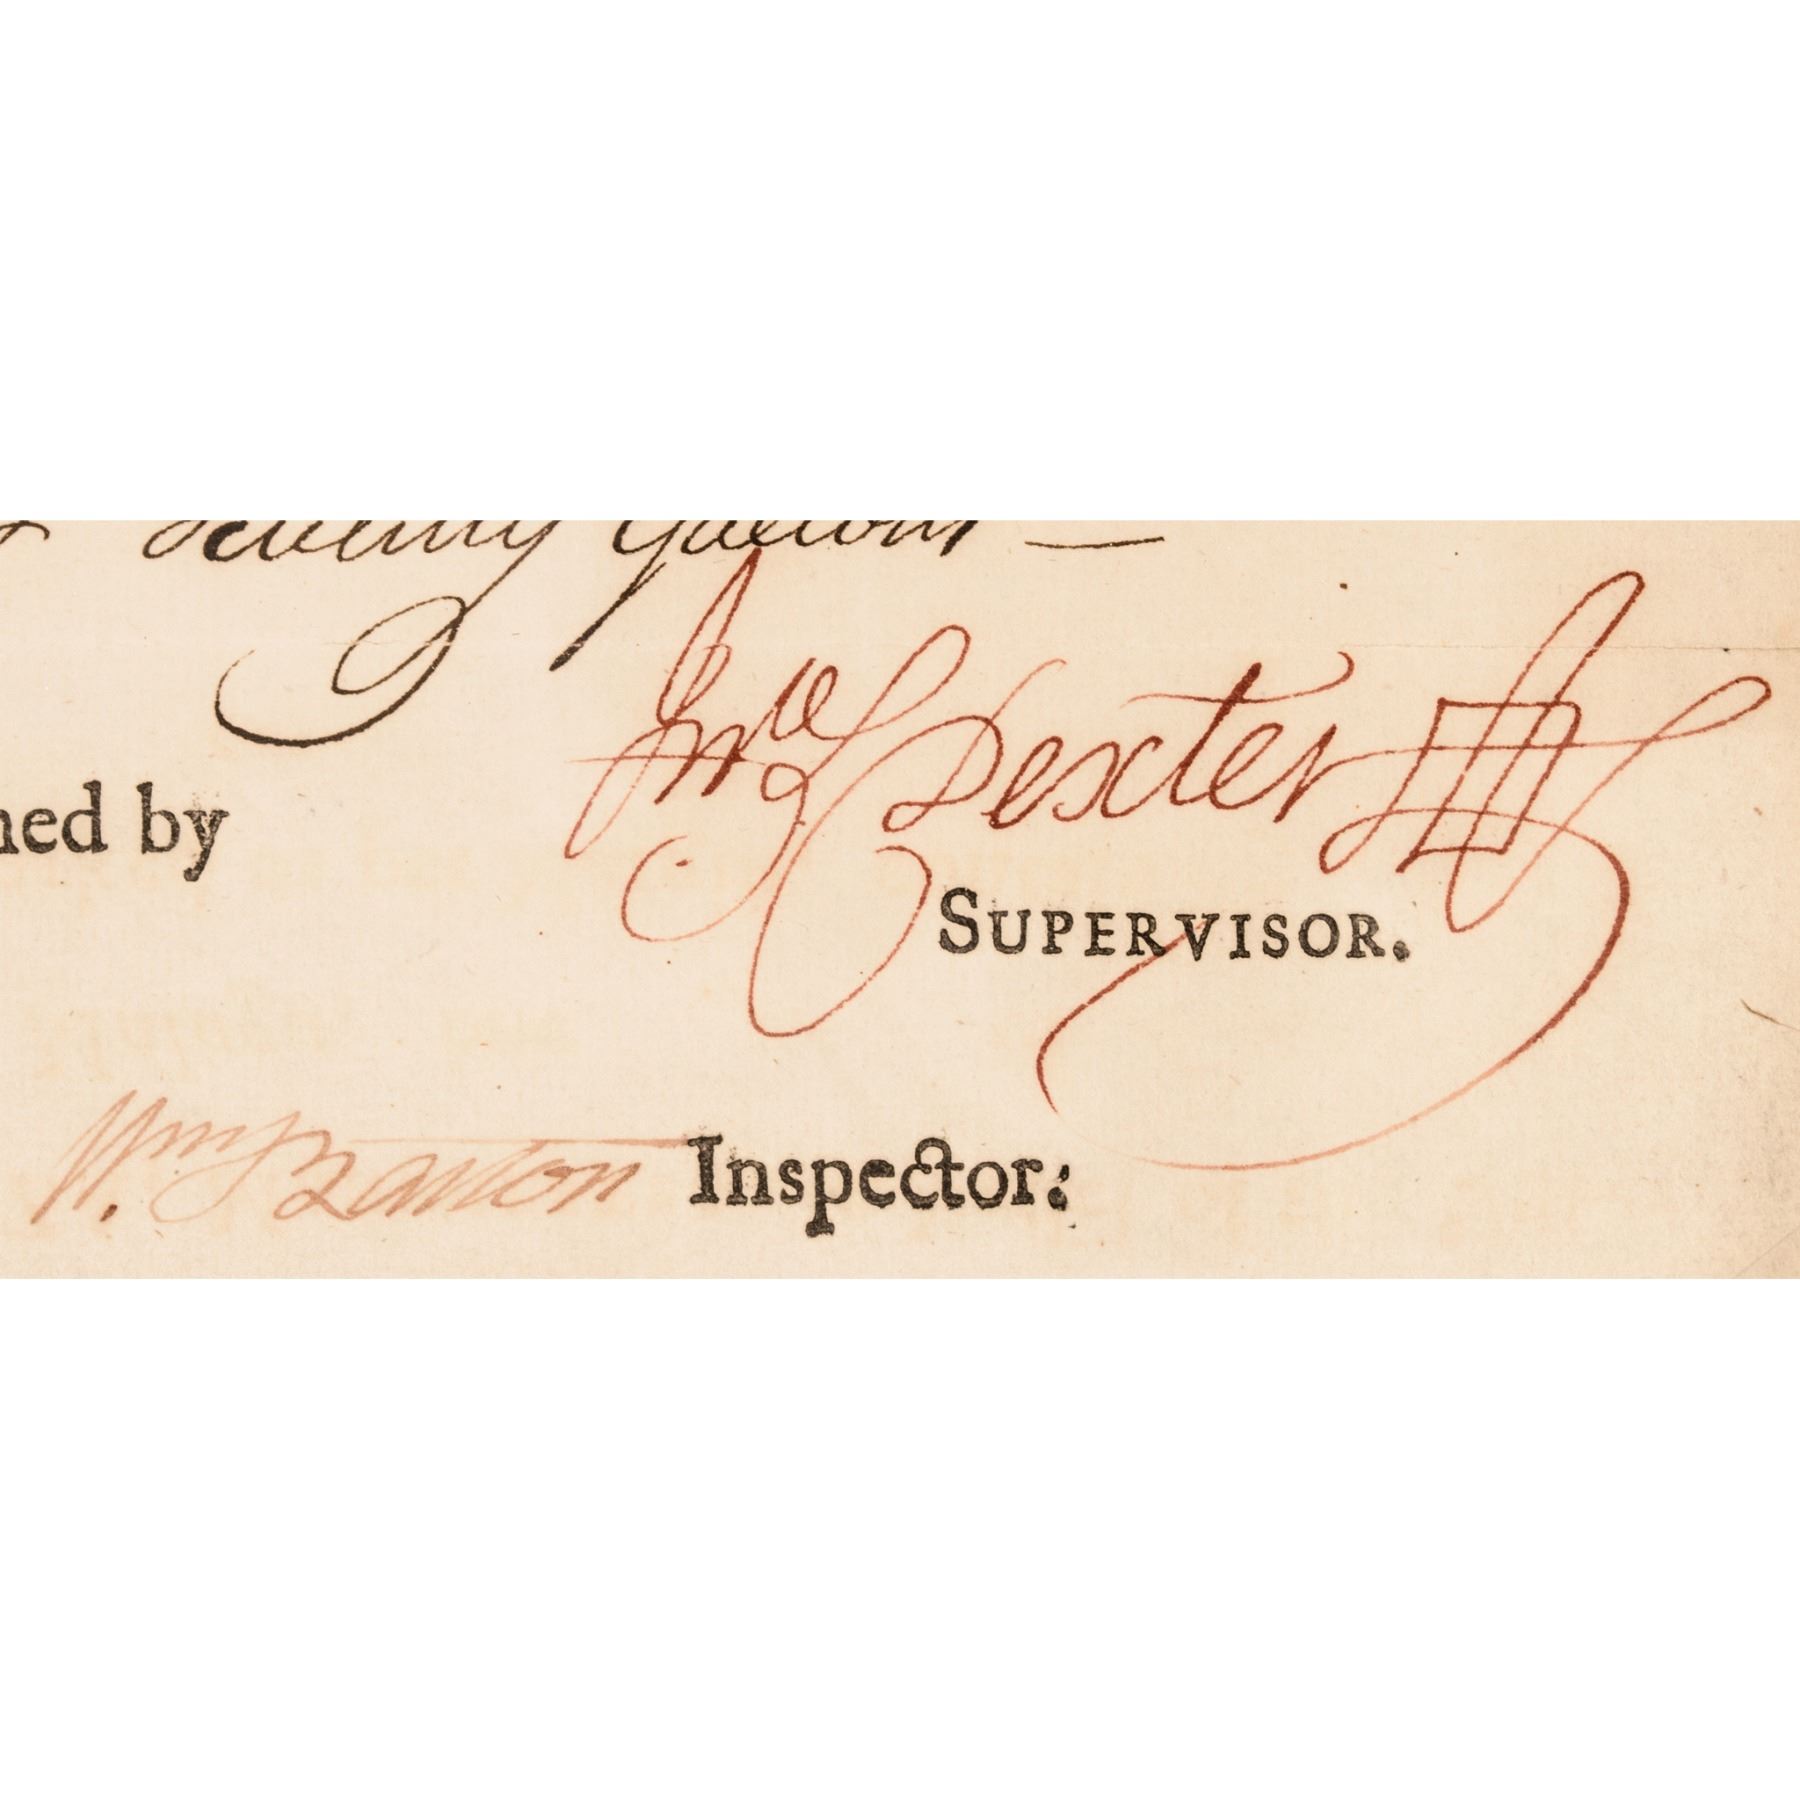 Seventy Gallons —
Jno S Dexter
ned by
SUPERVISOR.
Wm. Barton Inspector: